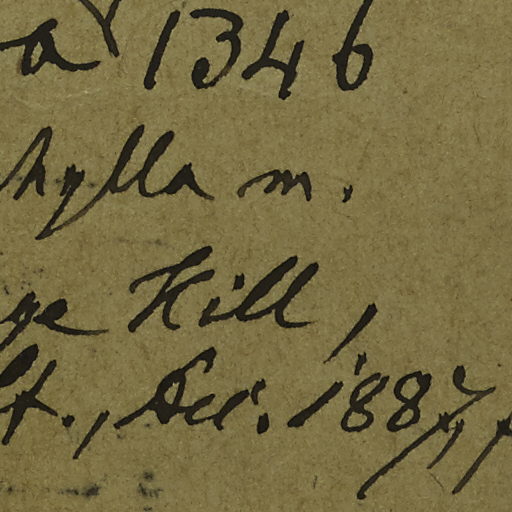 a 1346
hylla m.
ge Hill,
t., Dec. 1887,